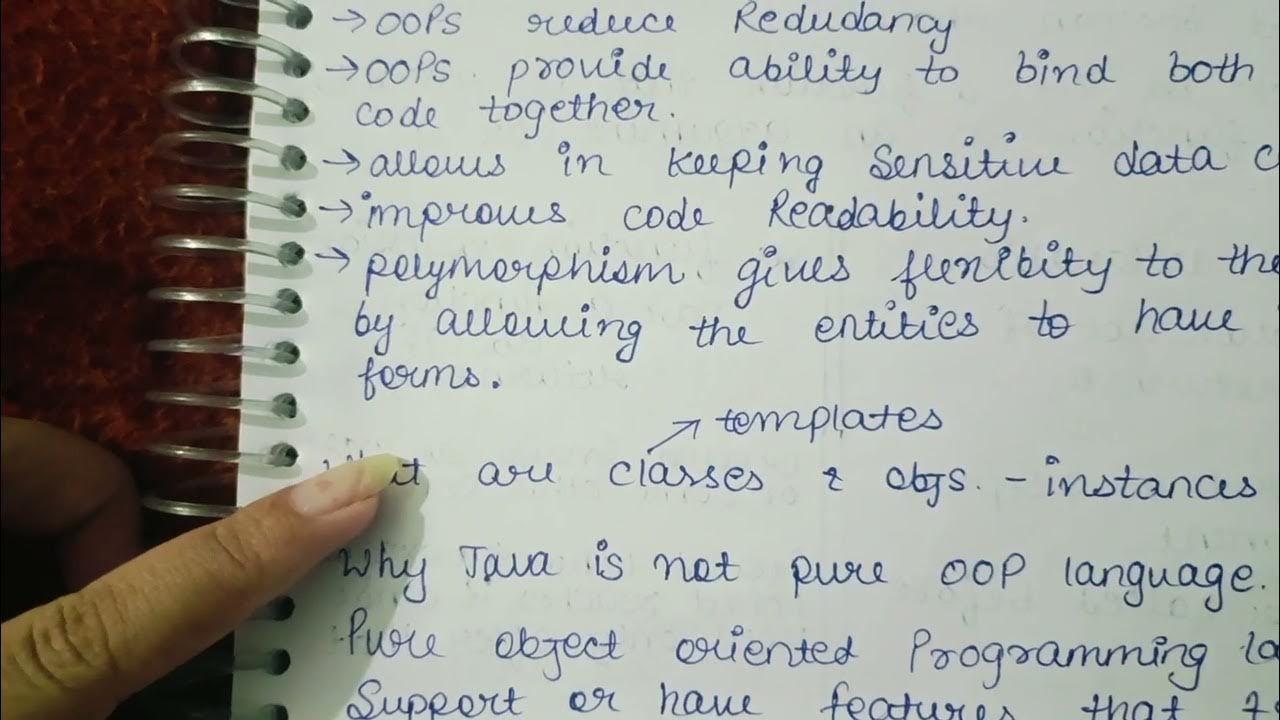 → OOPS reduce Redudancy
→ OOPS provide ability to bind both
code together.
→ allows in keeping Sensitive data
→ improves code Readability.
→ polymorphism gives flexibity to the
by allowing the entities to have
forms.
→ templates
are classes & objs. - instances
Why Java is not pure OOP language.
Pure object oriented Programming
Support or have features that